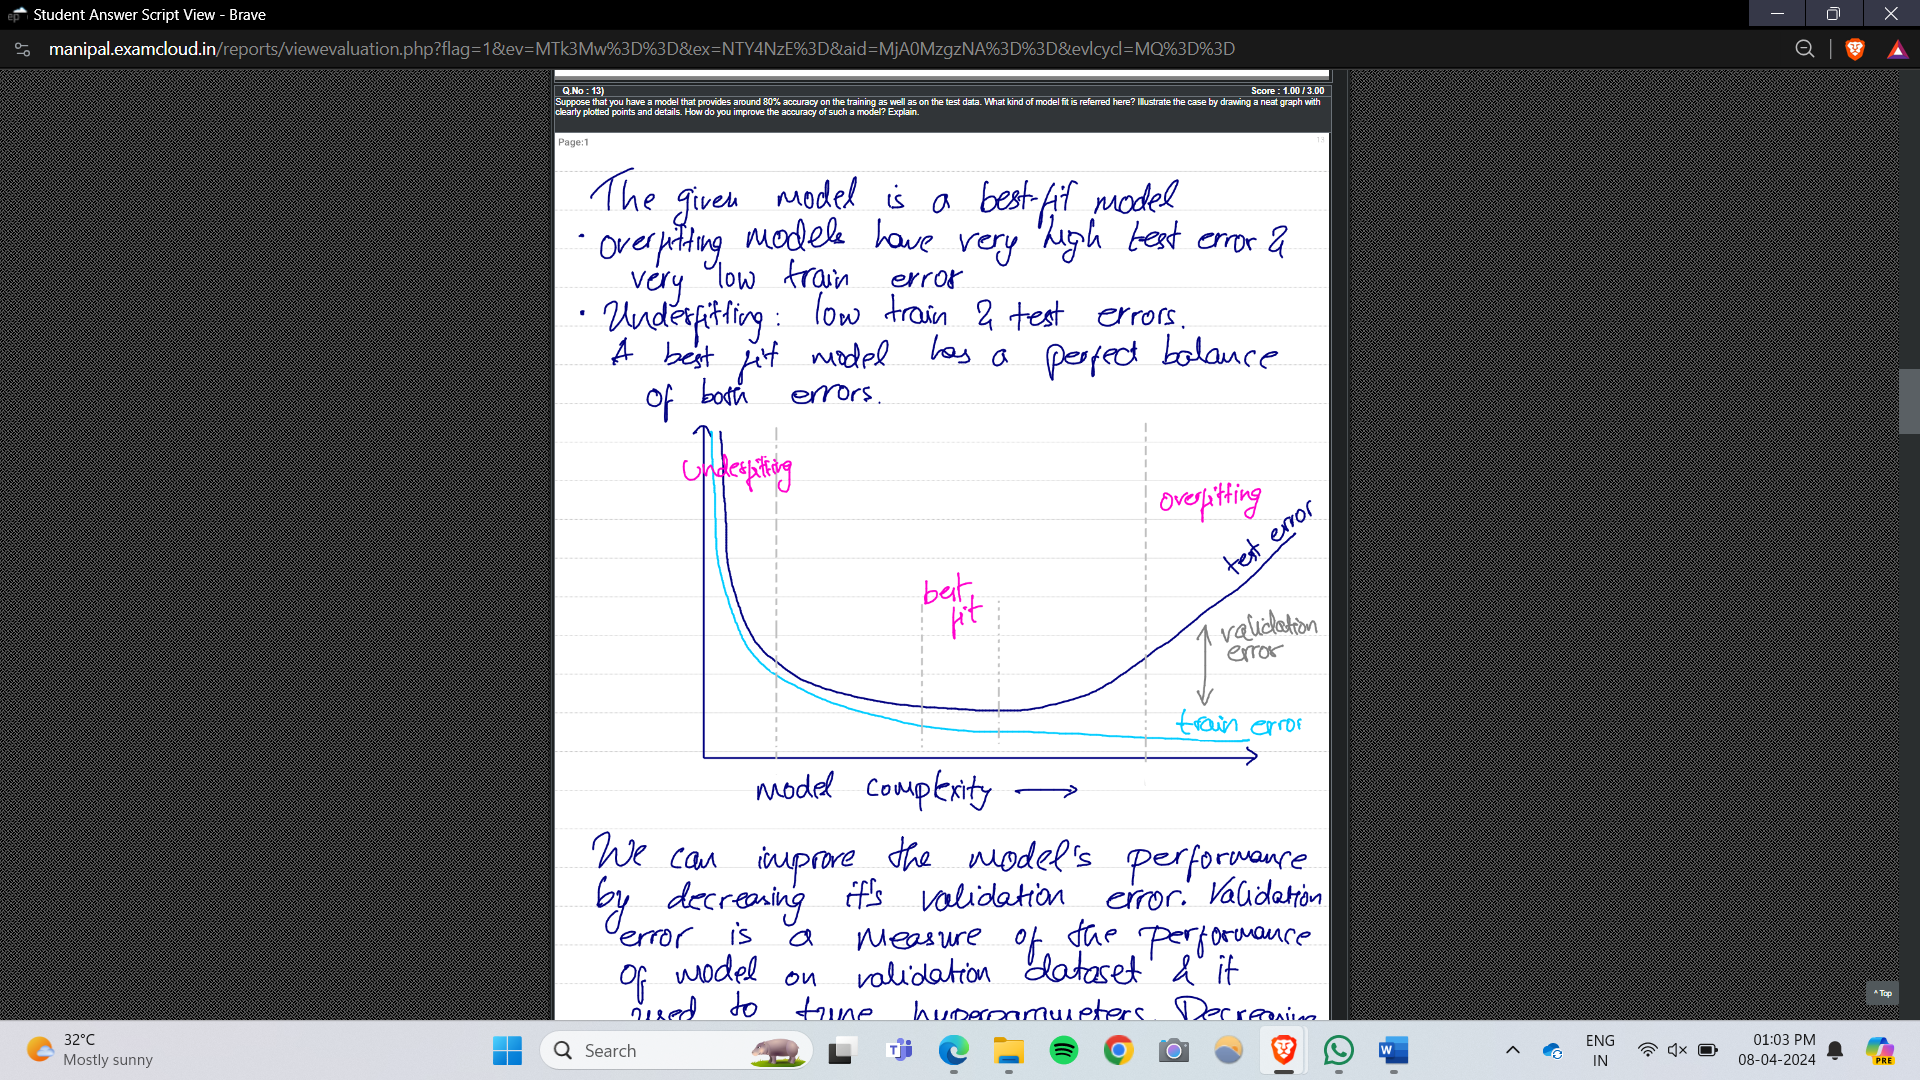 Student Answer Script View - Brave
manipal.examcloud.in/reports/viewevaluation.php?flag=1&ev=MTk3Mw%3D%3D&ex=NTY4NzE%3D&aid=MjA0MzgzNA%3D%3D&evlcycl=MQ%3D%3D
Q.No : 13) Score : 1.00 / 3.00
Suppose that you have a model that provides around 80% accuracy on the training as well as on the test data. What kind of model fit is referred here? Illustrate the case by drawing a neat graph with
clearly plotted points and details. How do you improve the accuracy of such a model? Explain.
Page:1
The given model is a best-fit model
· Overfitting models have very high test error &
very low train error
· Underfitting : low train & test errors.
A best fit model has a perfect balance
of both errors.
Underfitting
overfitting
test error
best
fit
validation
error
train error
model complexity
We can improve the model's performance
by decreasing it's validation error. Validation
error is a measure of the performance
of model on validation dataset & it
used to tune hyperparameters. Decreasing
^ Top
32°C
Mostly sunny
Search
ENG
IN
01:03 PM
08-04-2024
PRE